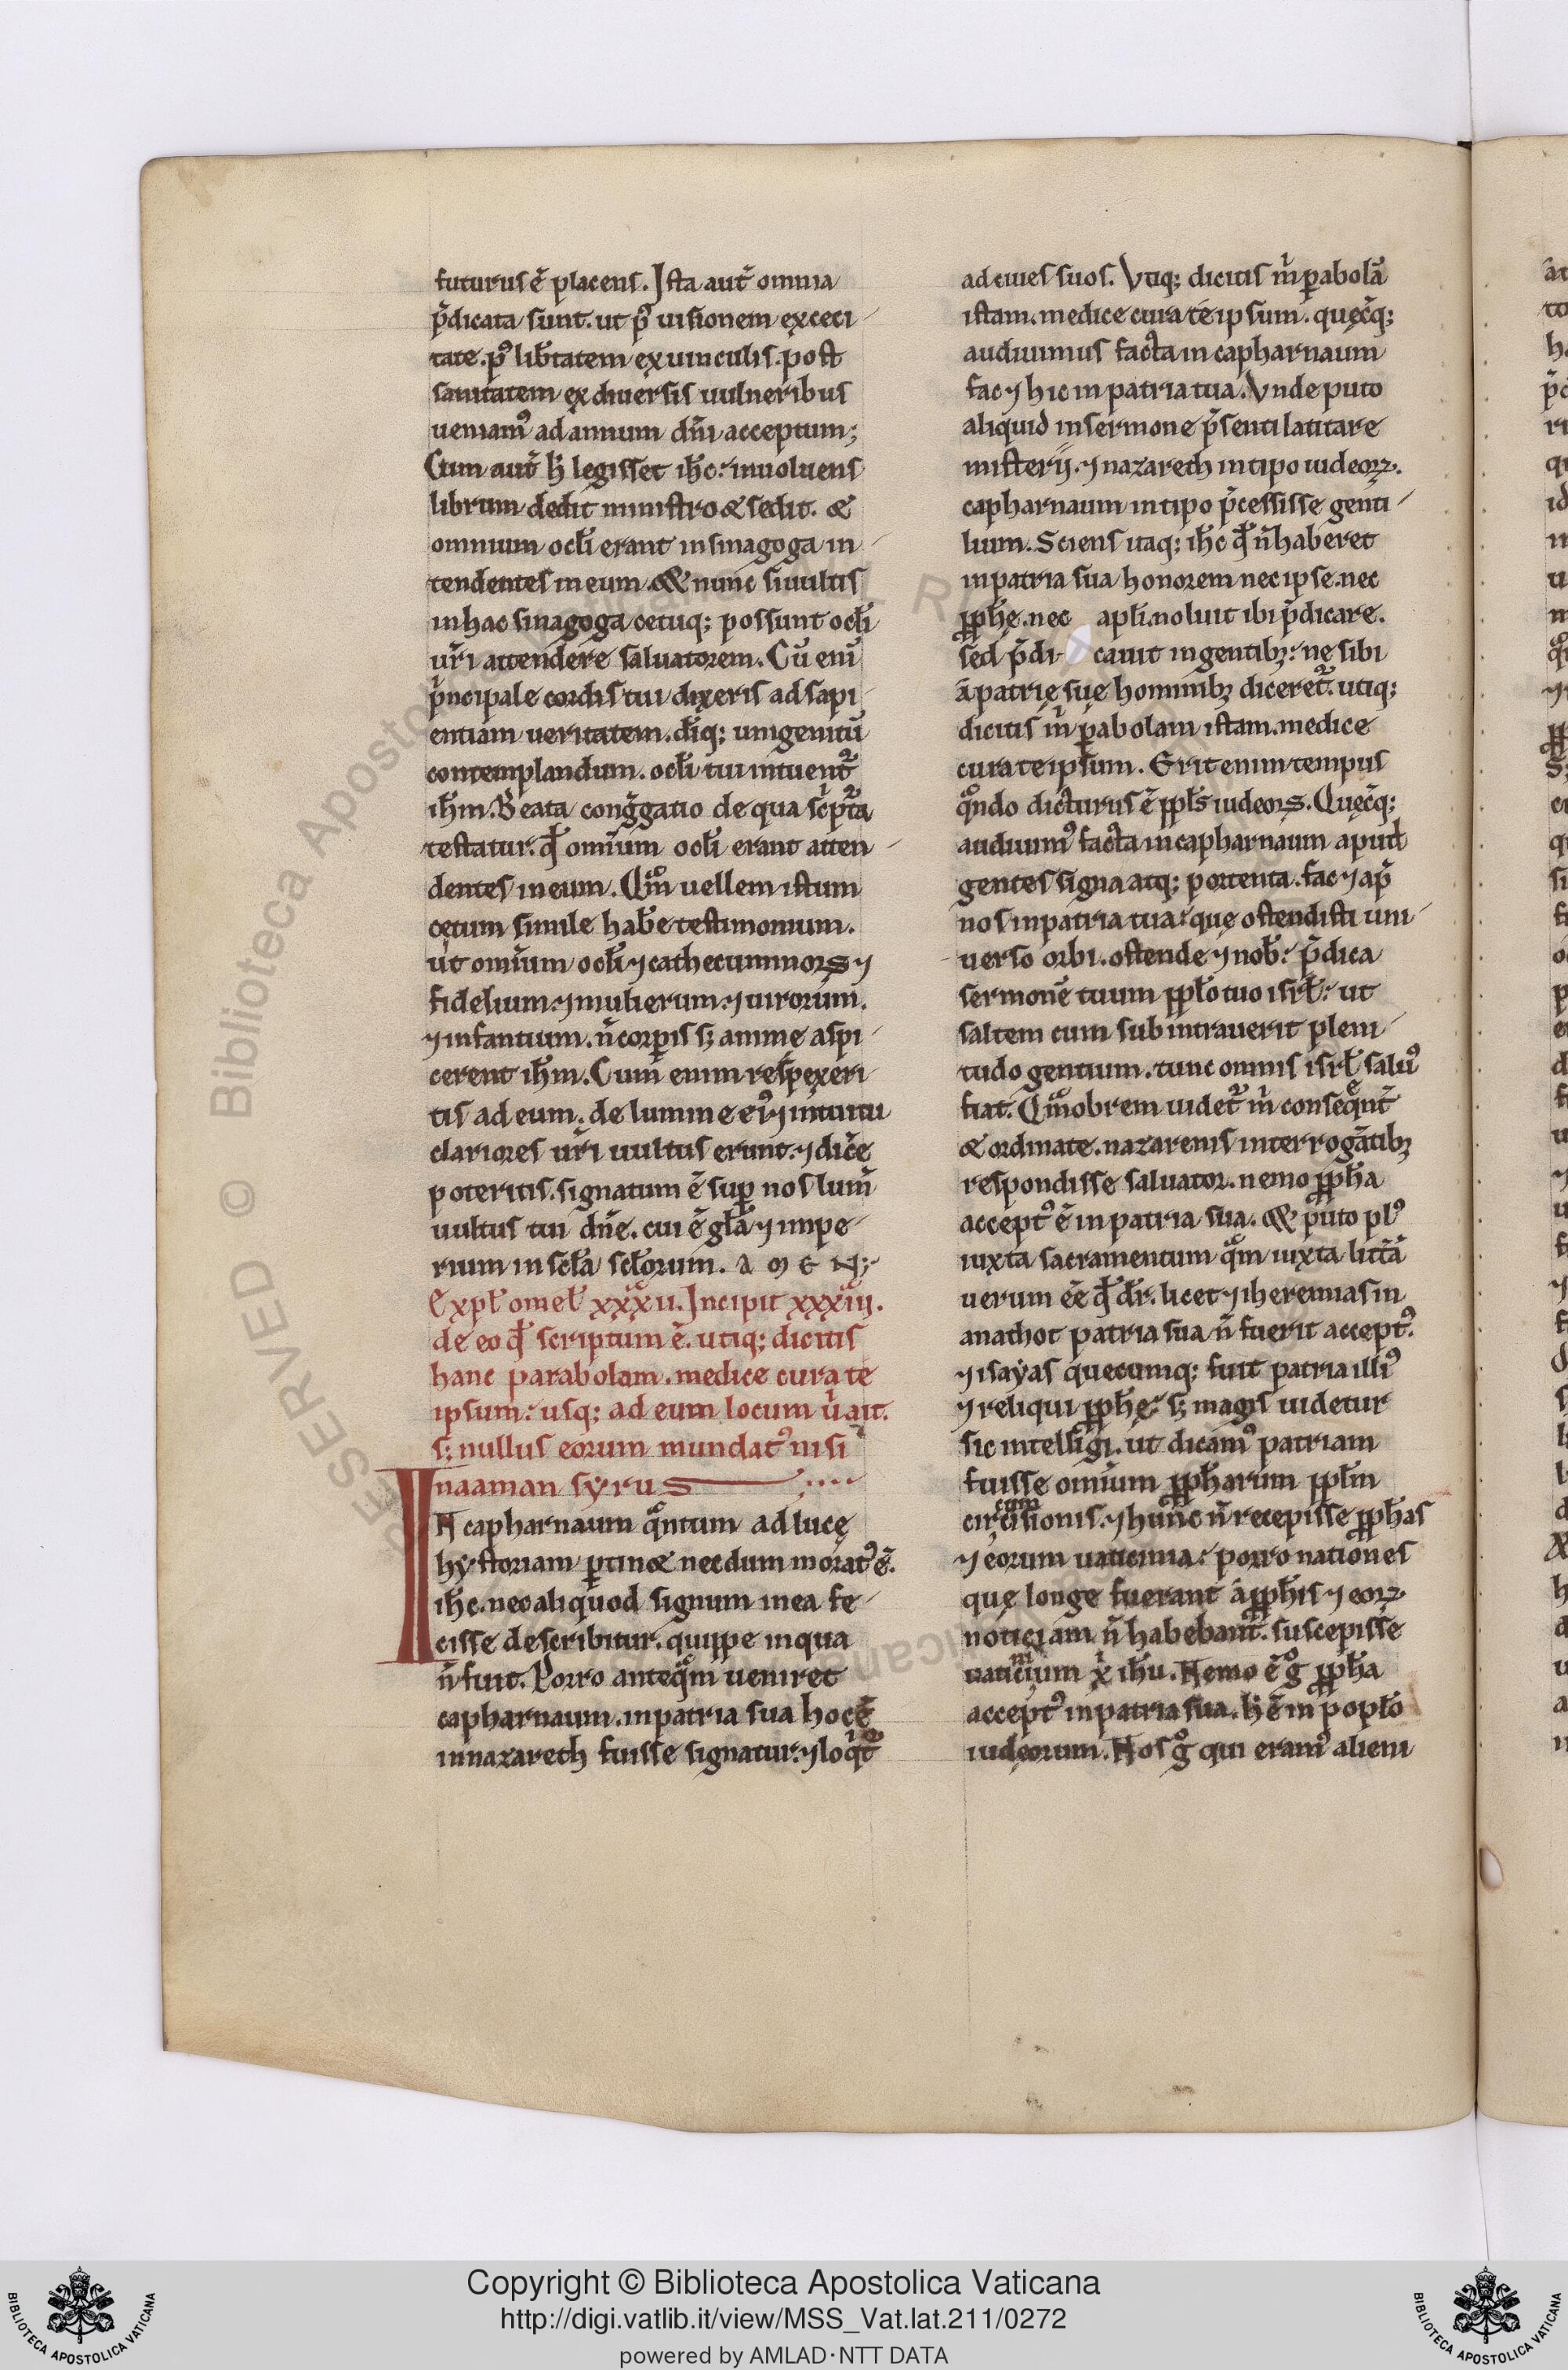 futurus ē placens. Ista aut̄ omnia
p̄dicata sunt. ut pꝰ uisionem ex ceci
tate. pꝰ lib̄tatem ex uinculis. post
sanitatem ex diuersis uulneribus
ueniamꝰ ad annum dn̄i acceptum;
Cum aut̄ h̄ legisset ih̄c. inuoluens
librum dedit ministro & sedit. &
omnium ocłi erant in sinagoga in
tendentes in eum. & nunc si uultis
in hac sinagoga cetuq; possunt ocłi
ur̄i attendere saluatorem. Cū eni̅
p̍ncipale cordis tui dixeris ad sapi
entiam ueritatem. diq; unigenitū
contemplandum. ocłi tui intuent᷑
ih̄m. Beata cong̅gatio de qua sc̍pt᷑a
testatur. qđ omīum ocłi erant atten
dentes in eum. Qͦm uellem istum
cętum simile hab̄e testimonium.
ut omīum ocłi ⁊ cathecuminoꝝ ⁊
fidelium. ⁊ mulierum. ⁊ uirorum.
⁊ infantium. n̄ corꝑis s; animę aspi
cerent ih̄m. Cum enim respexeri
tis ad eum. de lumine eiꝰ ⁊ intuitu
clariores ur̄i uultus erunt. ⁊ dic̄e
poteritis. signatum ē suꝑ nos lum̄
uultus tui dn̄e. cui ē gła ⁊ impe
rium in scła scłorum. AMEN;
Expł omeł xxxii. Incipit xxxiii.
de eo qđ scriptum ē. utiq; dicitis
hanc parabolam. medice cura te
ipsum. usq; ad eum locum u̍ ait.
s; nullus eorum mundatꝰ nisi
naaman syrus
IN capharnaum qͣntum ad lucę
hystoriam ꝑtin& necdum moratꝰ ē.
ih̄c. nec aliquod signum in ea fe
cisse describitur. quippe in qua
n̄ fuit. Porro anteqͣm ueniret
capharnaum. in patria sua hoc ē
in nazareth fuisse signatur. ⁊ loq̍t᷑
ad ciues suos. Vtiq; dicitis m̍ ꝑabolā
istam. medice cura te ipsum. quęc̄q;
audiuimus facta in capharnaum
fac ⁊ hic in patria tua. Vnde puto
aliquid in sermone p̄senti latitare
misterij. ⁊ nazareth in tipo iudeoꝝ.
capharnaum in tipo p̄cessisse genti
lium. Sciens itaq; ih̄c qđ n̄ haberet
in patria sua honorem nec ipse. nec
ꝓph̄ę. nec apłi. noluit ibi p̄dicare.
sed p̄di cauit in gentibꝫ. ne sibi
a patrię suę hominibꝫ diceret᷑. utiq;
dicitis m̍ ꝑabolam istam. medice
cura te ipsum. Erit enim tempus
qͣndo dicturus ē ppłs iudeoꝝ. Quęc̄q;
audiuimꝰ facta in capharnaum apud
gentes signa atq; portenta. fac ⁊ ap̄
nos in patria tua. que ostendisti uni
uerso orbi. ostende ⁊ nob̄. p̄dica
sermonē tuum ppło tuo isrł. ut
saltem cum subintrauerit pleni
tudo gentium. tunc omnis isrł saluꝰ
fiat. Qͣmobrem uidet᷑ m̍ conseqͤnt̄
& ordinate. nazarenis interrogātibꝫ
respondisse saluator. nemo ꝓph̄a
acceptꝰ ē in patria sua. & puto plꝰ
iuxta sacramentum qͣm iuxta litt̄ā
uerum ēe qđ dr̄. licet ⁊ iheremias in
anathot patria sua n̄ fuerit acceptꝰ.
⁊ isayas quecumq; fuit patria illiꝰ
⁊ reliqui ꝓph̄ę. s; magis uidetur
sic intelligi. ut dicamꝰ patriam
fuisse omīum ꝓph̄arum ppłm
circumcisionis. ⁊ hunc n̄ recepisse ꝓph̄as
⁊ eorum uaticinia. porro nationes
quę longe fuerant a ꝓph̄is ⁊ eoꝝ
noticiam n̄ habebant. suscepisse
uaticinium x̍ ih̄u. Nemo ē gͦ ꝓph̄a
acceptꝰ in patria sua. h̄ ē in popło
iudęorum. Nos gͦ qui eramꝰ alieni
Copyright © Biblioteca Apostolica Vaticana
http://digi.vatlib.it/view/MSS_Vat.lat.211/0272
powered by AMLAD·NTT DATA